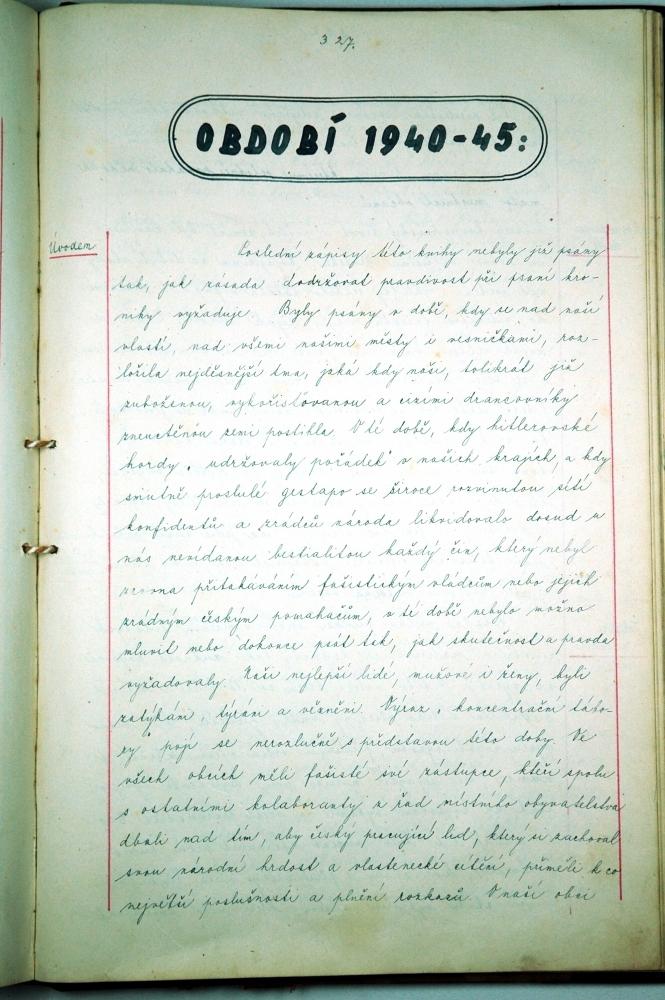 327.
OBDOBÍ 1940-45:
Úvodem
Poslední zápisy této knihy nebyly již psány
tak, jak zásada dodržovat pravdivost při psaní kro-
niky vyžaduje. Byly psány v době, kdy se nad naší
vlastí, nad všemi našimi městy i vesničkami, roz-
ložila nejděsnější tma, jaká kdy naši, tolikrát již
zuboženou, vykořisťovanou a cizími drancovníky
zneuctěnou zemi postihla. V té době, kdy hitlerovské
hordy "udržovaly pořádek" v našich krajích, a kdy
smutně proslulé gestapo se široce rozvinutou sítí
konfidentů a zrádců národa likvidovalo dosud u
nás nevídanou bestialitou každý čin, který nebyl
zrovna přitakáváním fašistickým vládcům nebo jejich
zrádným českým pomahačům, v té době nebylo možno
mluvit nebo dokonce psát tak, jak skutečnost a pravda
vyžadovaly. Naši nejlepší lidé, mužové i ženy, byli
zatýkáni, týráni a vězněni. Výraz "koncentrační tábo-
ry" pojí se nerozlučně s představou této doby. Ve
všech obcích měli fašisté své zástupce, kteří spolu
s ostatními kolaboranty z řad místního obyvatelstva
dbali nad tím, aby český pracující lid, který si zachoval
svou národní hrdost a vlastenecké cítění, přiměli k co
největší poslušnosti a plnění rozkazů. V naší obci